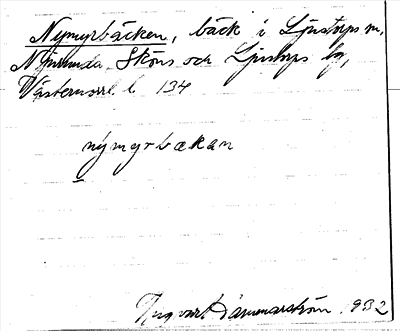 Nymyrbäcken, bäck i Ljustorps sn,
Njurunda, Sköns och Ljustorps tg,
Västernorrl. l. 134
nýmyrbækan
Ingvart Hammarström 1932